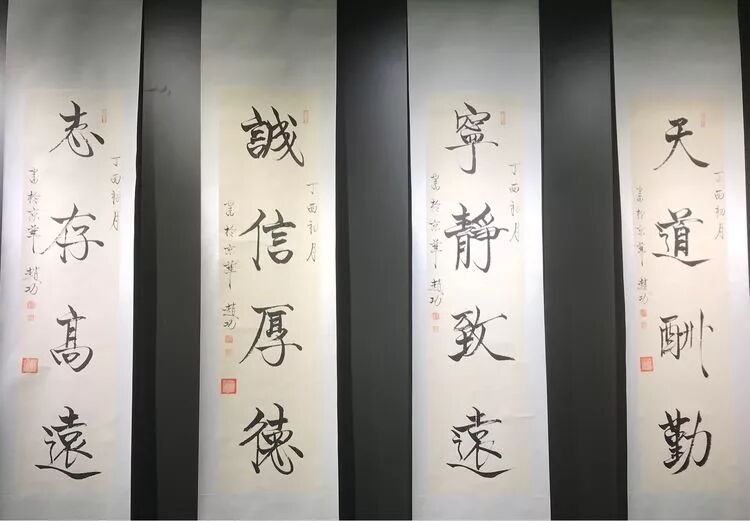 天道酬勤
丁酉初月
書於京華 趙功
寧靜致遠
丁酉初月
書於京華 趙功
誠信厚德
丁酉初月
書於京華 趙功
志存高遠
丁酉初月
書於京華 趙功